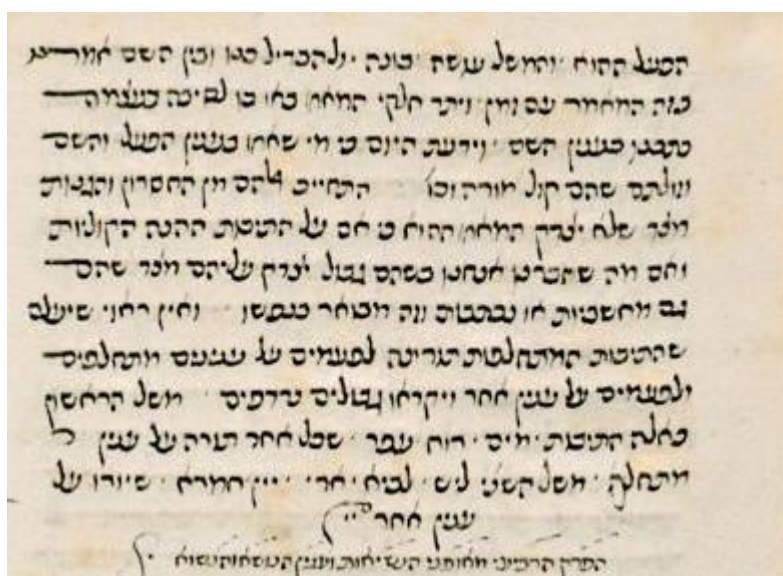 הפעל ההוא והמשל עושה בונה ולהבדיל בינו ובין השם אמר
בזה המאמר עם זמן ויתר חלקי המאמר באו בו
כעניין השם וידעת היום כי מי שאמר כעניין הפעל והשם
וזולתם שהם קול מורה וכו' התחייב להם מן החסרון והגנות
מצד שלא יצדק המאמר ההוא כי אם על התיבות ההנה הקוליות
ואם מה שחברנו אנחנו בשהם גבול יצדק עליהם מצד שהם
גם מחשביות או נכתבות וזה מבואר בנפשו ואין ראוי שיעלם
שהתיבות המתחלפות תורינה לפעמים על עניינים מתחלפים
ולפעמים על עניין אחד ויקראו גבולים נרדפים משל הראשון
כאלה התיבות מים רוח עפר שכל אחד תורה על עניין
מתחלף משל השני ליש לביא ארי יין חמרא שיורו על
עניין אחד
הפרק הרביעי הנשיאות ועניין הנושא והנשוא